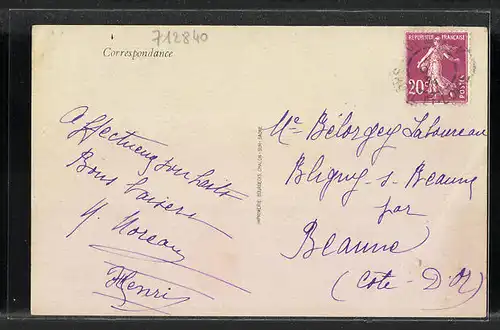 712840
Correspondance
REPUBLIQUE FRANÇAISE
20c
POSTES
Affectueux souhaits
Bons baisers
H. Moreau
Henri
IMPRIMERIE BOURGEOIS CHALON-SUR-SAONE
Mr Bélorgey Laboureau
Bligny-s-Beaune
par
Beaune
(Côte-D'Or)